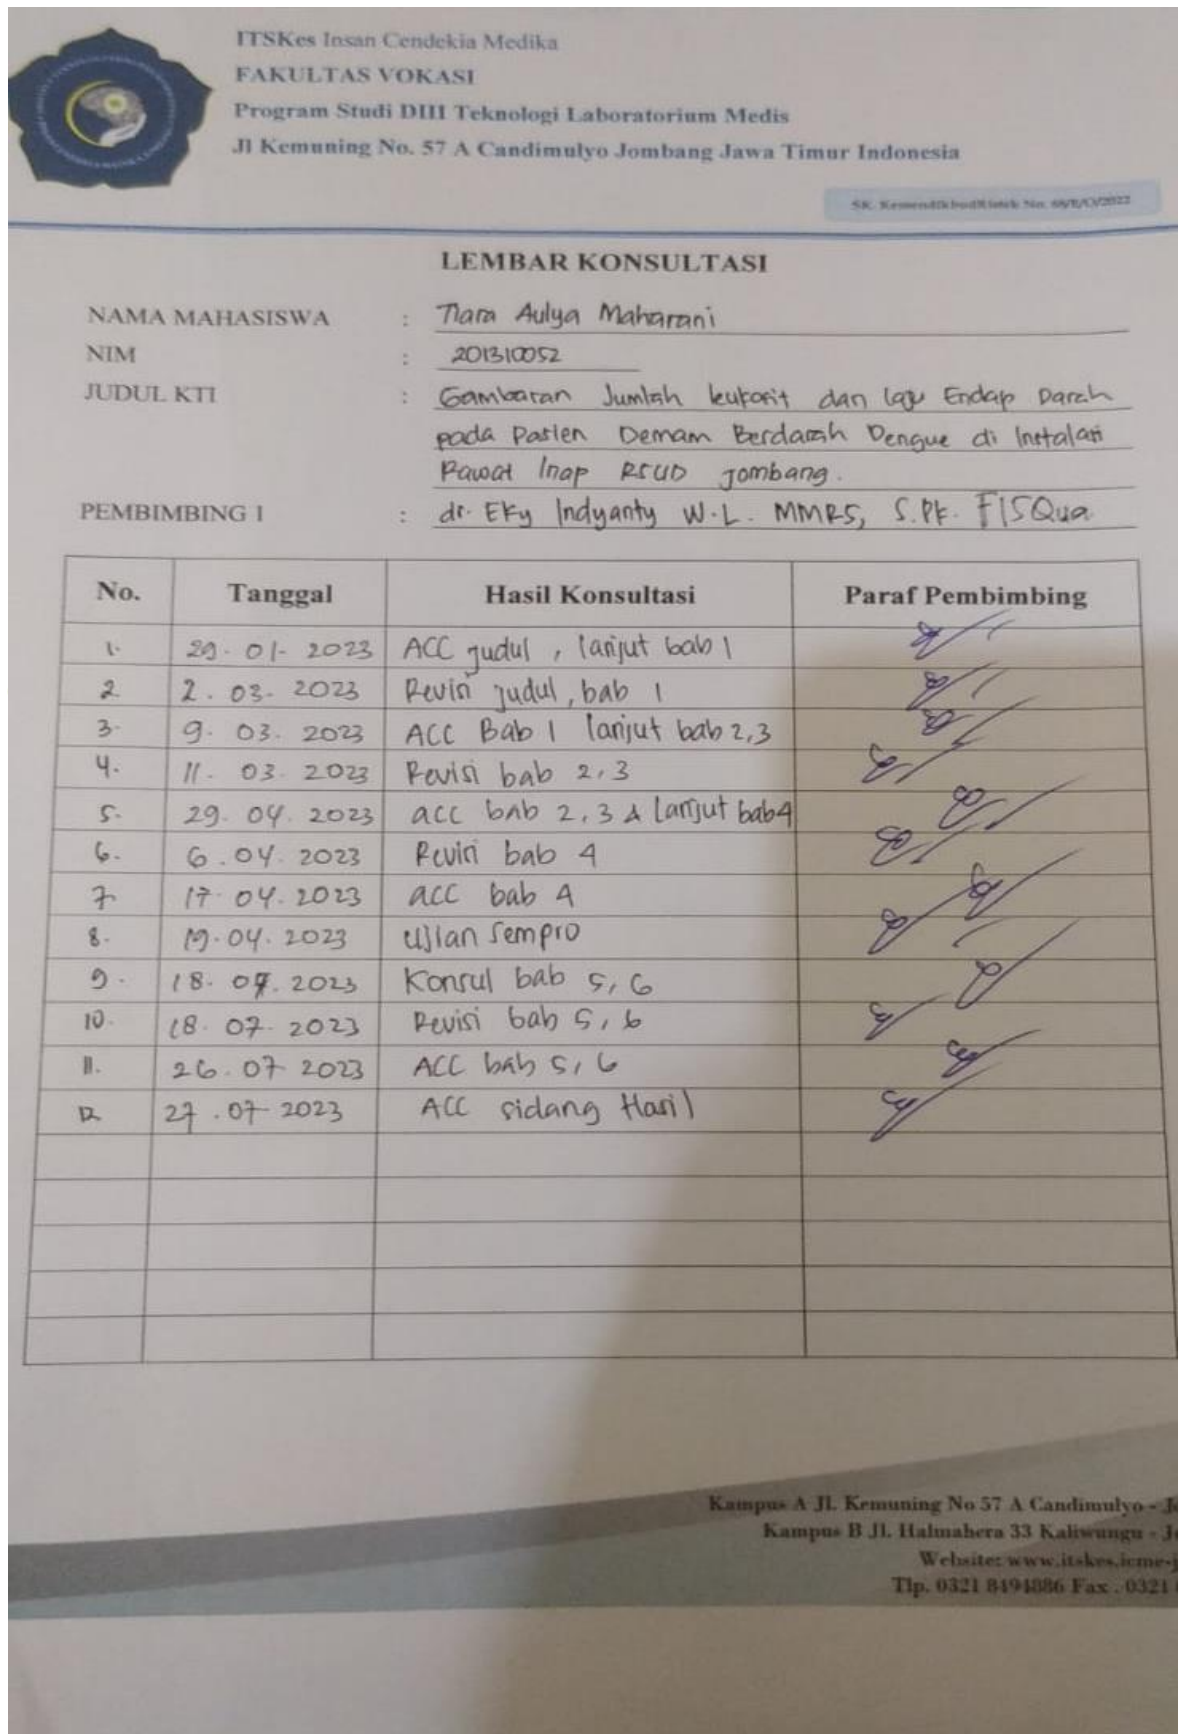 ITSKes Insan Cendekia Medika
FAKULTAS VOKASI
Program Studi DIII Teknologi Laboratorium Medis
Jl Kemuning No. 57 A Candimulyo Jombang Jawa Timur Indonesia
SK. KemendikbudRistek No.
LEMBAR KONSULTASI
NAMA MAHASISWA : Tiara Aulya Maharani
NIM : 201310052
JUDUL KTI : Gambaran Jumlah leukosit dan laju Endap Darah
pada Pasien Demam Berdarah Dengue di Instalasi
Rawat Inap RSUD Jombang.
PEMBIMBING 1 : dr. Eky Indyanty W.L. MMRS, S.PK. FISQua
No. Tanggal Hasil Konsultasi Paraf Pembimbing
1. 29-01-2023 ACC judul, lanjut bab 1
2. 2.03-2023 Revisi judul, bab 1
3. 9.03.2023 ACC Bab 1 lanjut bab 2,3
4. 11-03-2023 Revisi bab 2,3
5. 29-04.2023 acc bab 2,3 & lanjut bab4
6. 6.04.2023 Revisi bab 4
7. 17.04.2023 acc bab 4
8. 19.04.2023 Ujian Sempro
9. 18.07.2023 Konsul bab 5,6
10. 18.07.2023 Revisi bab 5,6
11. 26.07.2023 ACC bab 5,6
12 27.07-2023 ACC sidang Hasil
Kampus A Jl. Kemuning No 57 A Candimulyo - J
Kampus B Jl. Halmahera 33 Kaliwungu - J
Website: www.itskes.icme-j
Tlp. 0321 8494886 Fax . 0321